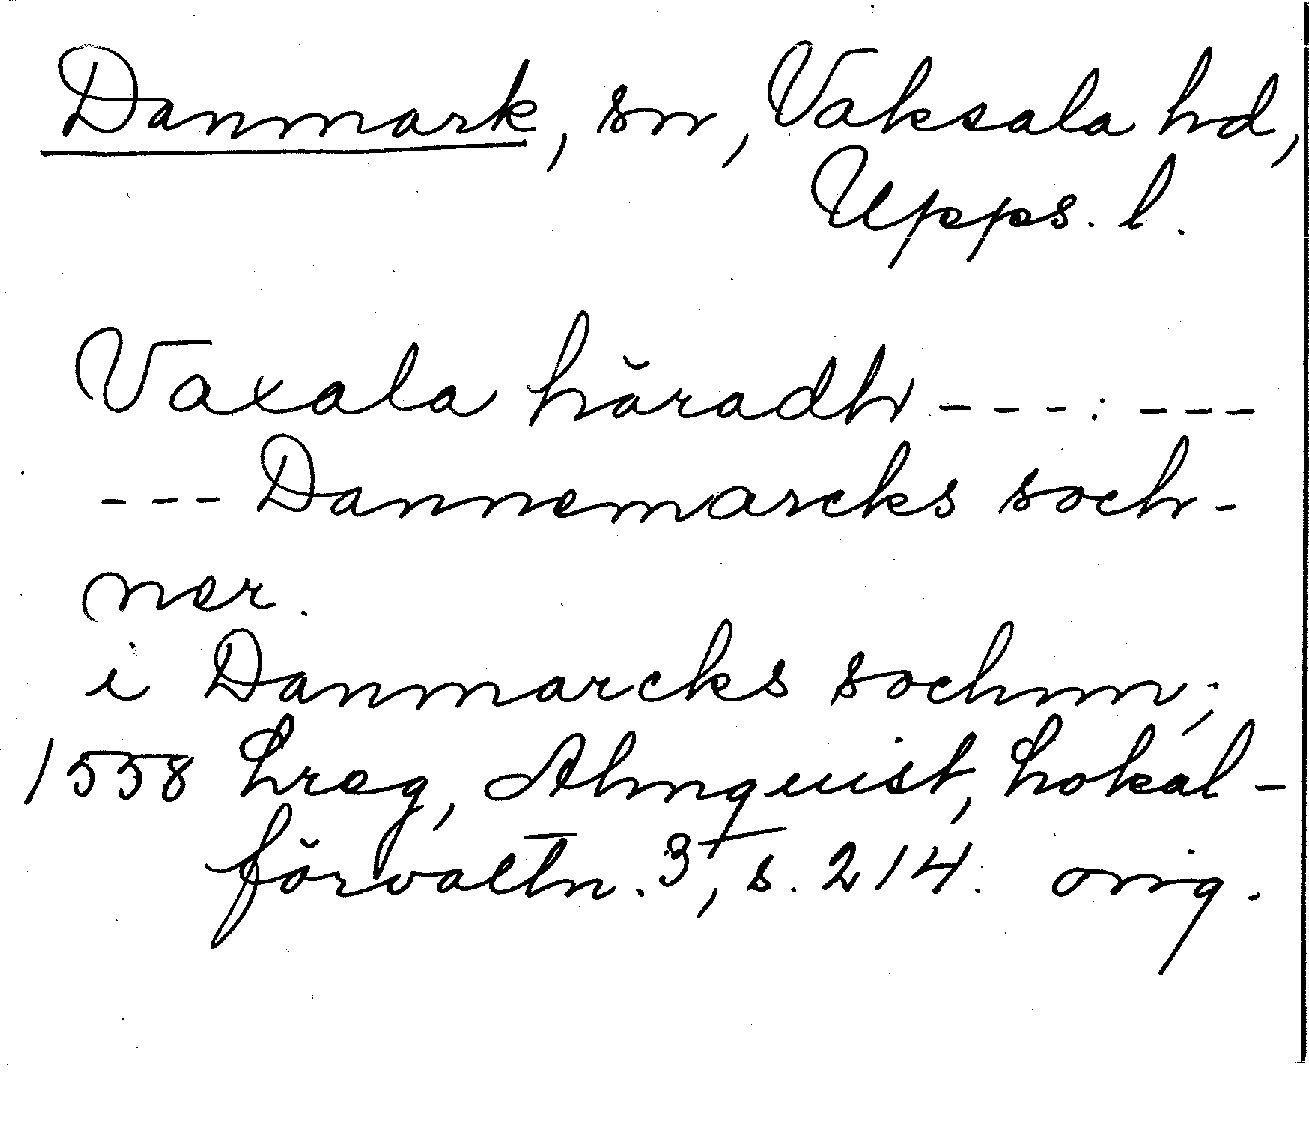 Danmark, sn, Vaksala hd,
Upps. l.
Vaxala häradh - - - : - - -
- - - Dannemarcks soch-
ner.
i Danmarcks sochnn;
1558 Lreg, Almquist, Lokal-
förvaltn. 3, s. 214. orig.